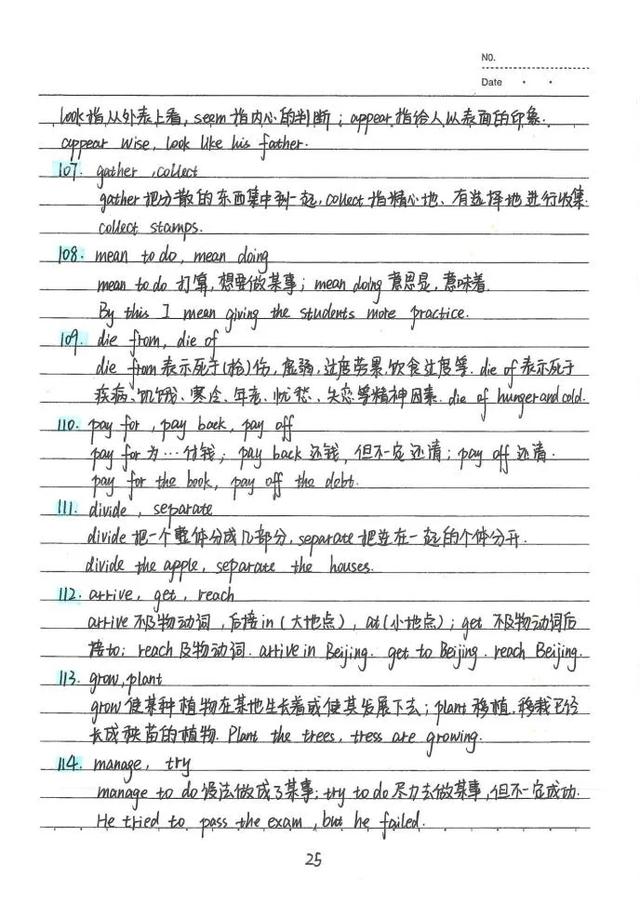 NO.
Date
look指从外表上看, seem指内心的判断; appear指给人以表面的印象.
appear wise, look like his father.
107. gather, collect
gather把分散的东西集中到一起, collect指精心地、有选择地进行收集.
collect stamps.
108. mean to do, mean doing
mean to do 打算, 想要做某事; mean doing 意思是, 意味着.
By this I mean giving the students more practice.
109. die from, die of
die from表示死于(枪)伤, 虚弱, 过度劳累, 饮食过度等. die of表示死于
疾病、饥饿、寒冷、年老、忧愁、失恋等精神因素. die of hunger and cold.
110. pay for, pay back, pay off
pay for 为…付钱; pay back 还钱, 但不一定还清; pay off 还清.
pay for the book, pay off the debt.
111. divide, separate
divide把一个整体分成几部分, separate把连在一起的个体分开.
divide the apple, separate the houses.
112. arrive, get, reach
arrive 不及物动词, 后接in(大地点), at(小地点); get 不及物动词后
接to; reach及物动词. arrive in Beijing. get to Beijing. reach Beijing.
113. grow, plant
grow使某种植物在某地生长着或使其发展下去; plant移植, 移栽已经
长成秧苗的植物. Plant the trees, tress are growing.
114. manage, try
manage to do设法做成了某事; try to do尽力去做某事, 但不一定成功.
He tried to pass the exam, but he failed.
25